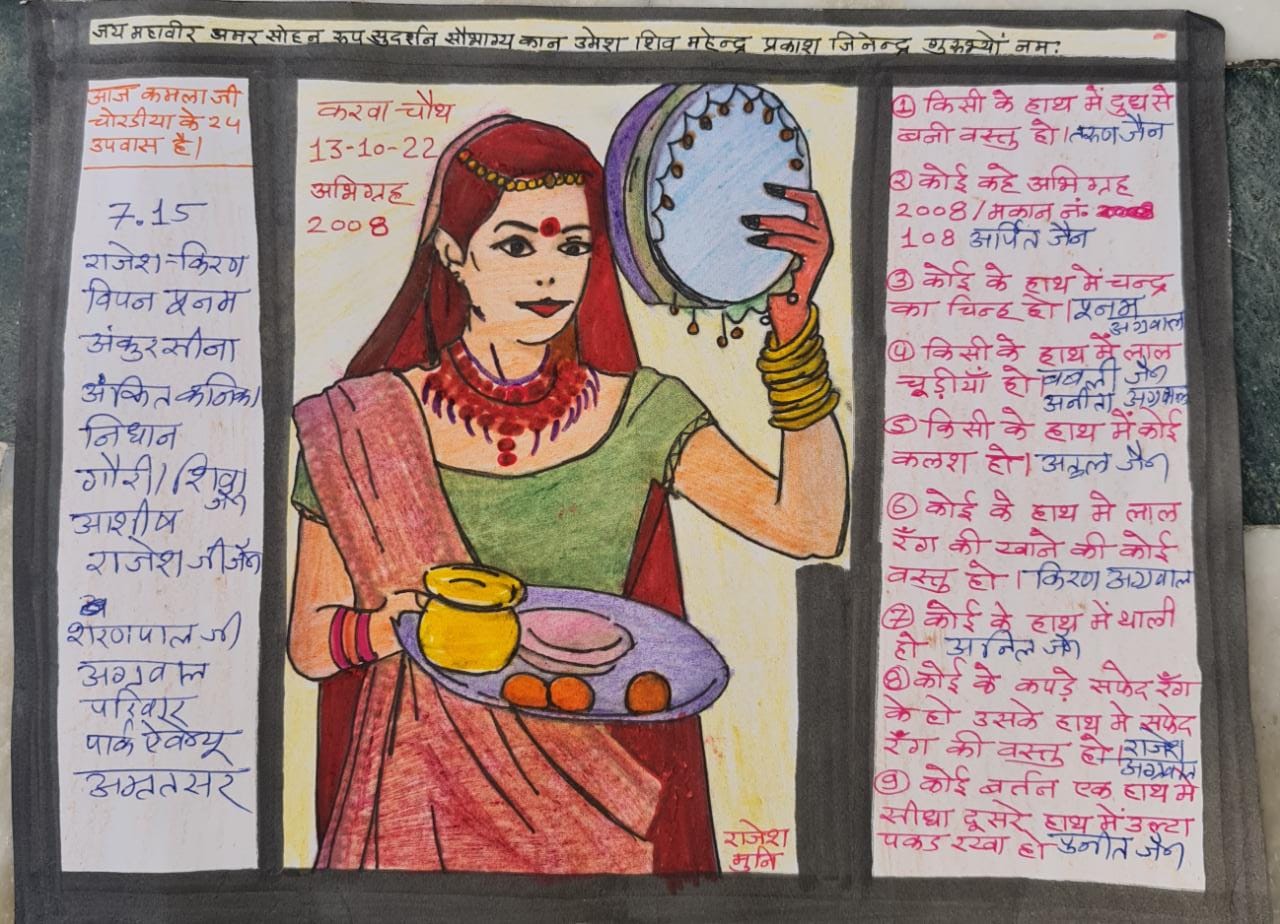 जय महावीर अमर सोहन रूप सुदर्शन सौभाग्य कान उमेश शिव महेन्द्र प्रकाश जिनेन्द्र गुरूभ्यों नमः
आज कमला जी
चोरडीया के २५
उपवास है।
7.15
राजेश-किरण
विपन पूनम
अंकुर सीना
अंकित कनिका
निधान
गौरी/शिवा
आशीष
राजेश जी जैन
शरणपाल जी
अग्रवाल
परिवार
पार्क ऐवेन्यू
अमृतसर
करवा चौथ
13-10-22
अभिग्रह
2008
राजेश
मुनि
① किसी के हाथ में दुध से
बनी वस्तु हो। तरूण जैन
② कोई कहे अभिग्रह
2008/मकान नं.
108 अर्पित जैन
③ कोई के हाथ में चन्द्र
का चिन्ह हो। पूनम
अग्रवाल
④ किसी के हाथ में लाल
चूड़ीयाँ हो बबली जैन
अनीता अग्रवाल
⑤ किसी के हाथ में कोई
कलश हो। अतुल जैन
⑥ कोई के हाथ मे लाल
रँग की खाने की कोई
वस्तु हो। किरण अग्रवाल
⑦ कोई के हाथ में थाली
हो अनिल जैन
⑧ कोई के कपड़े सफेद रँग
के हो उसके हाथ मे सफेद
रँग की वस्तु हो। राजेश
अग्रवाल
⑨ कोई बर्तन एक हाथ मे
सीधा दूसरे हाथ में उल्टा
पकड रखा हो पुनीत जैन